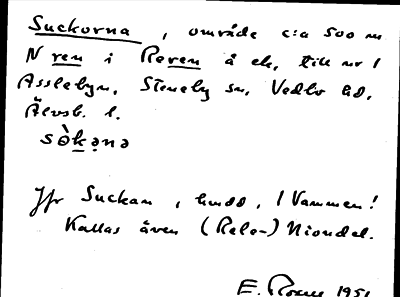 Suckorna, område c:a 500 m
N ren i Reren å ek, till nr 1
Asslebyn, Steneby sn, Vedbo hd,
Älvsb. l.
sò̀kə̣nə
Jfr Suckan, hmdd, I Vammen!
Kallas även (Rele-) Niondel.
E. 1951